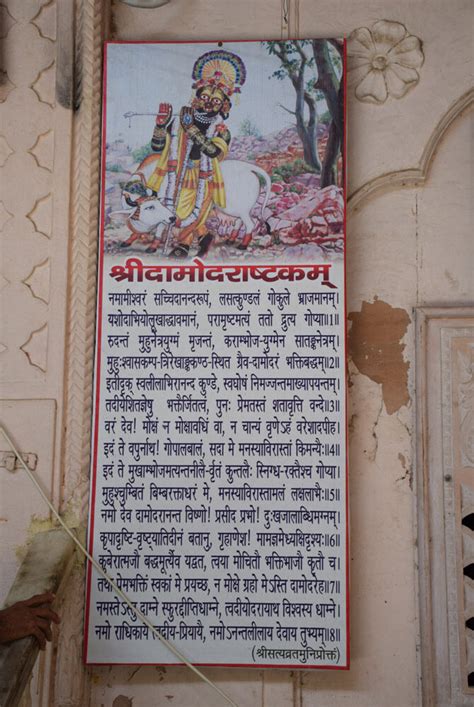 श्रीदामोदराष्टकम्
नमामीश्वरं सच्चिदानन्दरुपं, लसत्कुण्डलं गोकुले भ्राजमानम्।
यशोदाभियोलूखाद्धावमानं, परामृष्टमत्यं ततो द्रुत्य गोप्या॥1॥
रुदन्तं मुहुर्नेत्रयुग्मं मृजन्तं, कराम्भोज-युग्मेन सातङ्कनेत्रम्।
मुहुःश्वासकम्प-त्रिरेखाङ्ककण्ठ-स्थित ग्रैव-दामोदरं भक्तिबद्धम्॥2॥
इतीदृक् स्वलीलाभिरानन्द कुण्डे, स्वघोषं निमज्जन्तमाख्यापयन्तम्।
तदीयेशितज्ञेषु भक्तैर्जितत्वं, पुनः प्रेमतस्तं शतावृत्ति वन्दे॥3॥
वरं देव! मोक्षं न मोक्षावधिं वा, न चान्यं वृणेऽहं वरेशादपीह।
इदं ते वपुर्नाथ! गोपालबालं, सदा मे मनस्याविरास्तां किमन्यैः॥4॥
इदं ते मुखाम्भोजमत्यन्तनीलै-र्वृतं कुन्तलैः स्निग्ध-रक्तैश्च गोप्या।
मुहुश्चुम्बितं बिम्बरक्ताधरं मे, मनस्याविरास्तामलं लक्षलाभैः॥5॥
नमो देव दामोदरानन्त विष्णो! प्रसीद प्रभो! दुःखजालाब्धिमग्नम्।
कृपादृष्टि-वृष्ट्यातिदीनं बतानु, गृहाणेश! मामज्ञमेध्यक्षिदृश्यः॥6॥
कुवेरात्मजौ बद्धमूर्त्यैव यद्वत, त्वया मोचितौ भक्तिभाजौ कृतौ च।
तथा प्रेमभक्तिं स्वकां मे प्रयच्छ, न मोक्षे ग्रहो मेऽस्ति दामोदरेह॥7॥
नमस्तेऽस्तु दाम्ने स्फुरद्दीप्तिधाम्ने, त्वदीयोदरायाथ विश्वस्य धाम्ने।
नमो राधिकायै त्वदीय-प्रियायै, नमोऽनन्तलीलाय देवाय तुभ्यम्॥8॥
(श्रीसत्यव्रतमुनिप्रोक्तं)